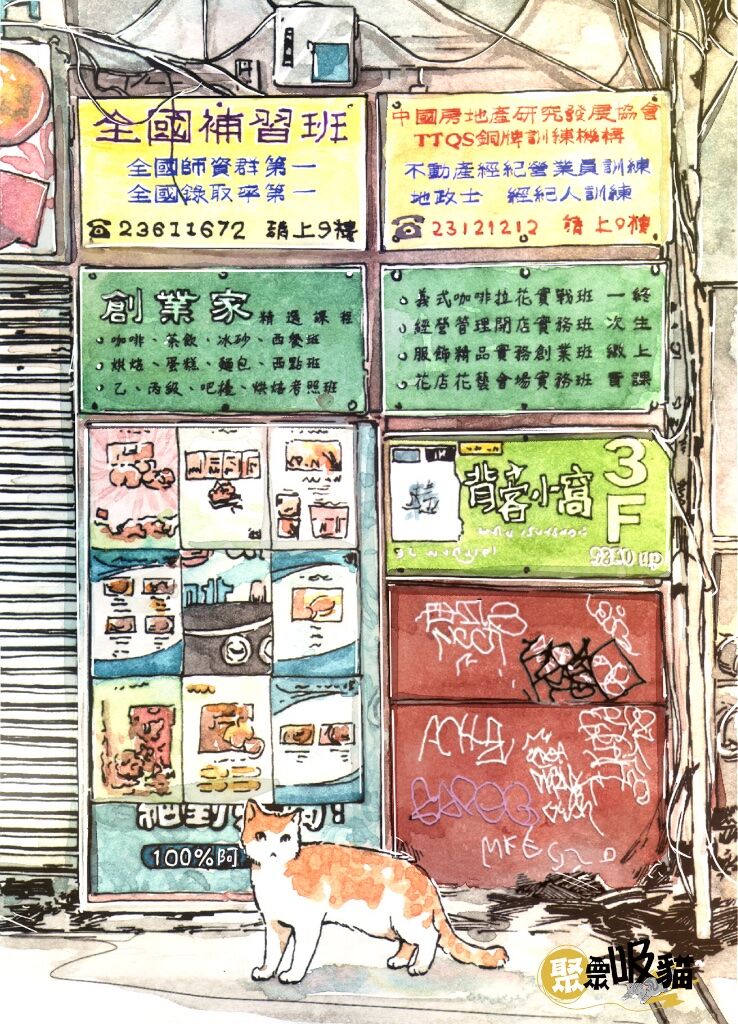 全國補習班
全國師資群第一
全國錄取率第一
☎23611672 請上9樓
中國房地產研究發展協會
TTQS銅牌訓練機構
不動產經紀營業員訓練
地政士 經紀人訓練
☎23121212 請上9樓
創業家 精選課程
咖啡、茶飲、冰砂、西餐班
烘焙、蛋糕、麵包、西點班
乙、丙級、吧檯、烘焙考照班
義式咖啡拉花實戰班 一終
經營管理開店實務班 次生
服飾精品實務創業班 繳上
花店花藝會場實務班 費課
背客小窩
3F
絕對
100%阿
MKE
聚票吸貓